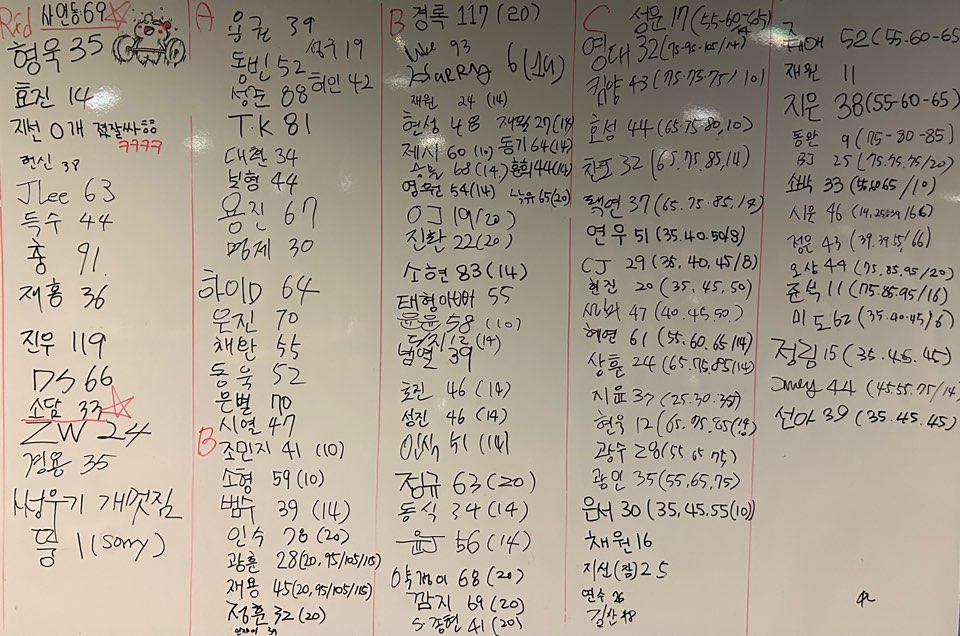 Rxd 사연동69
형욱 35
효진 14
재선 0개 젤잘싸ㅎㅎ
ㅋㅋㅋㅋ
헌신 38
JLee 63
득수 44
총 91
재홍 36
진우 119
DS 66
소담 33
ZW 24
경용 35
성우기 개멋짐
1 (sorry)
A
웅권 39
성규 19
도빈 52
성준 88 허인 42
T.K 81
대환 34
보형 44
용진 67
명제 30
하이D 64
우진 70
채탄 55
동욱 52
은별 70
시열 47
B
조민지 41 (10)
소형 59 (10)
범수 39 (14)
인수 78 (20)
광훈 28 (20, 95/105/115)
재용 45 (20, 95/105/115)
정훈 32 (20)
B 경록 117 (20)
93
Harry 6 (14)
재원 24 (14)
현성 48 재필 27 (14)
제시 60 (10) 동기 64 (14)
68 (14) 홍희 44 (14)
영원 54 (14) 65 (20)
OJ 19 (20)
진환 22 (20)
소현 83 (14)
태형아빠 55
윤윤 58 (10)
범열 39
효진 46 (14)
성진 46 (14)
인식 51 (14)
정규 63 (20)
동식 34 (14)
윤J 56 (14)
68 (20)
깜지 69 (20)
종현 41 (20)
C 성문 17 (55-60-65)
영대 32 (75-95-105/14)
킴양 43 (75.75.75/10)
효성 44 (65.75.80,10)
찬포 32 (65.75.85,14)
택연 37 (65.75.85,14)
연우 51 (35.40.50/8)
CJ 29 (35.40.45/8)
현진 20 (35.45.50)
47 (40.45.50)
혜연 61 (55.60.65/14)
상훈 24 (65.75.85/14)
지윤 37 (25.30.35)
현욱 12 (65.75.85/14)
광수 28 (55.65.75)
광민 35 (55,65,75)
윤서 30 (35,45.55(10))
채원 16
지선(짐) 25
연수 26
길산 48
52 (55-60-65)
재원 11
지은 38 (55-60-65)
동완 9 (75-80-85)
BJ 25 (75.75.75/20)
소박 33
시온 46
정은 43 (39.39.55/66)
오상 44 (75,85,95/20)
준석 11 (75.85.95/16)
미도 62 (35.40.45/6)
정림 15 (35.45.45)
44 (45.55.75/14)
선아 39 (35.45.45)